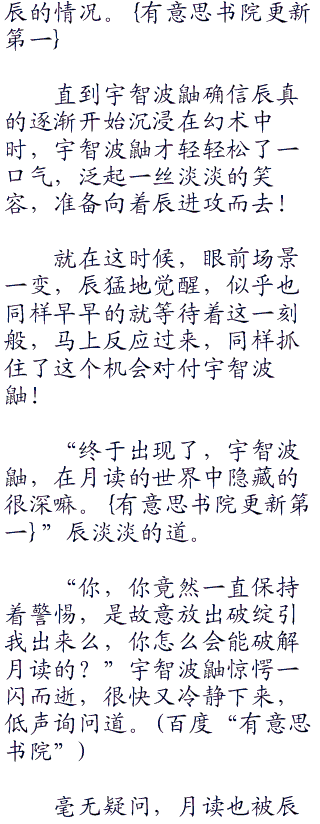 辰的情况。{有意思书院更新
第一}
直到宇智波鼬确信辰真
的逐渐开始沉浸在幻术中
时，宇智波鼬才轻轻松了一
口气，泛起一丝淡淡的笑
容，准备向着辰进攻而去！
就在这时候，眼前场景
一变，辰猛地觉醒，似乎也
同样早早的就等待着这一刻
般，马上反应过来，同样抓
住了这个机会对付宇智波
鼬！
“终于出现了，宇智波
鼬，在月读的世界中隐藏的
很深嘛。{有意思书院更新第
一}”辰淡淡的道。
“你，你竟然一直保持
着警惕，是故意放出破绽引
我出来么，你怎么会能破解
月读的？”宇智波鼬惊愕一
闪而逝，很快又冷静下来，
低声询问道。(百度“有意思
书院”)
毫无疑问，月读也被辰